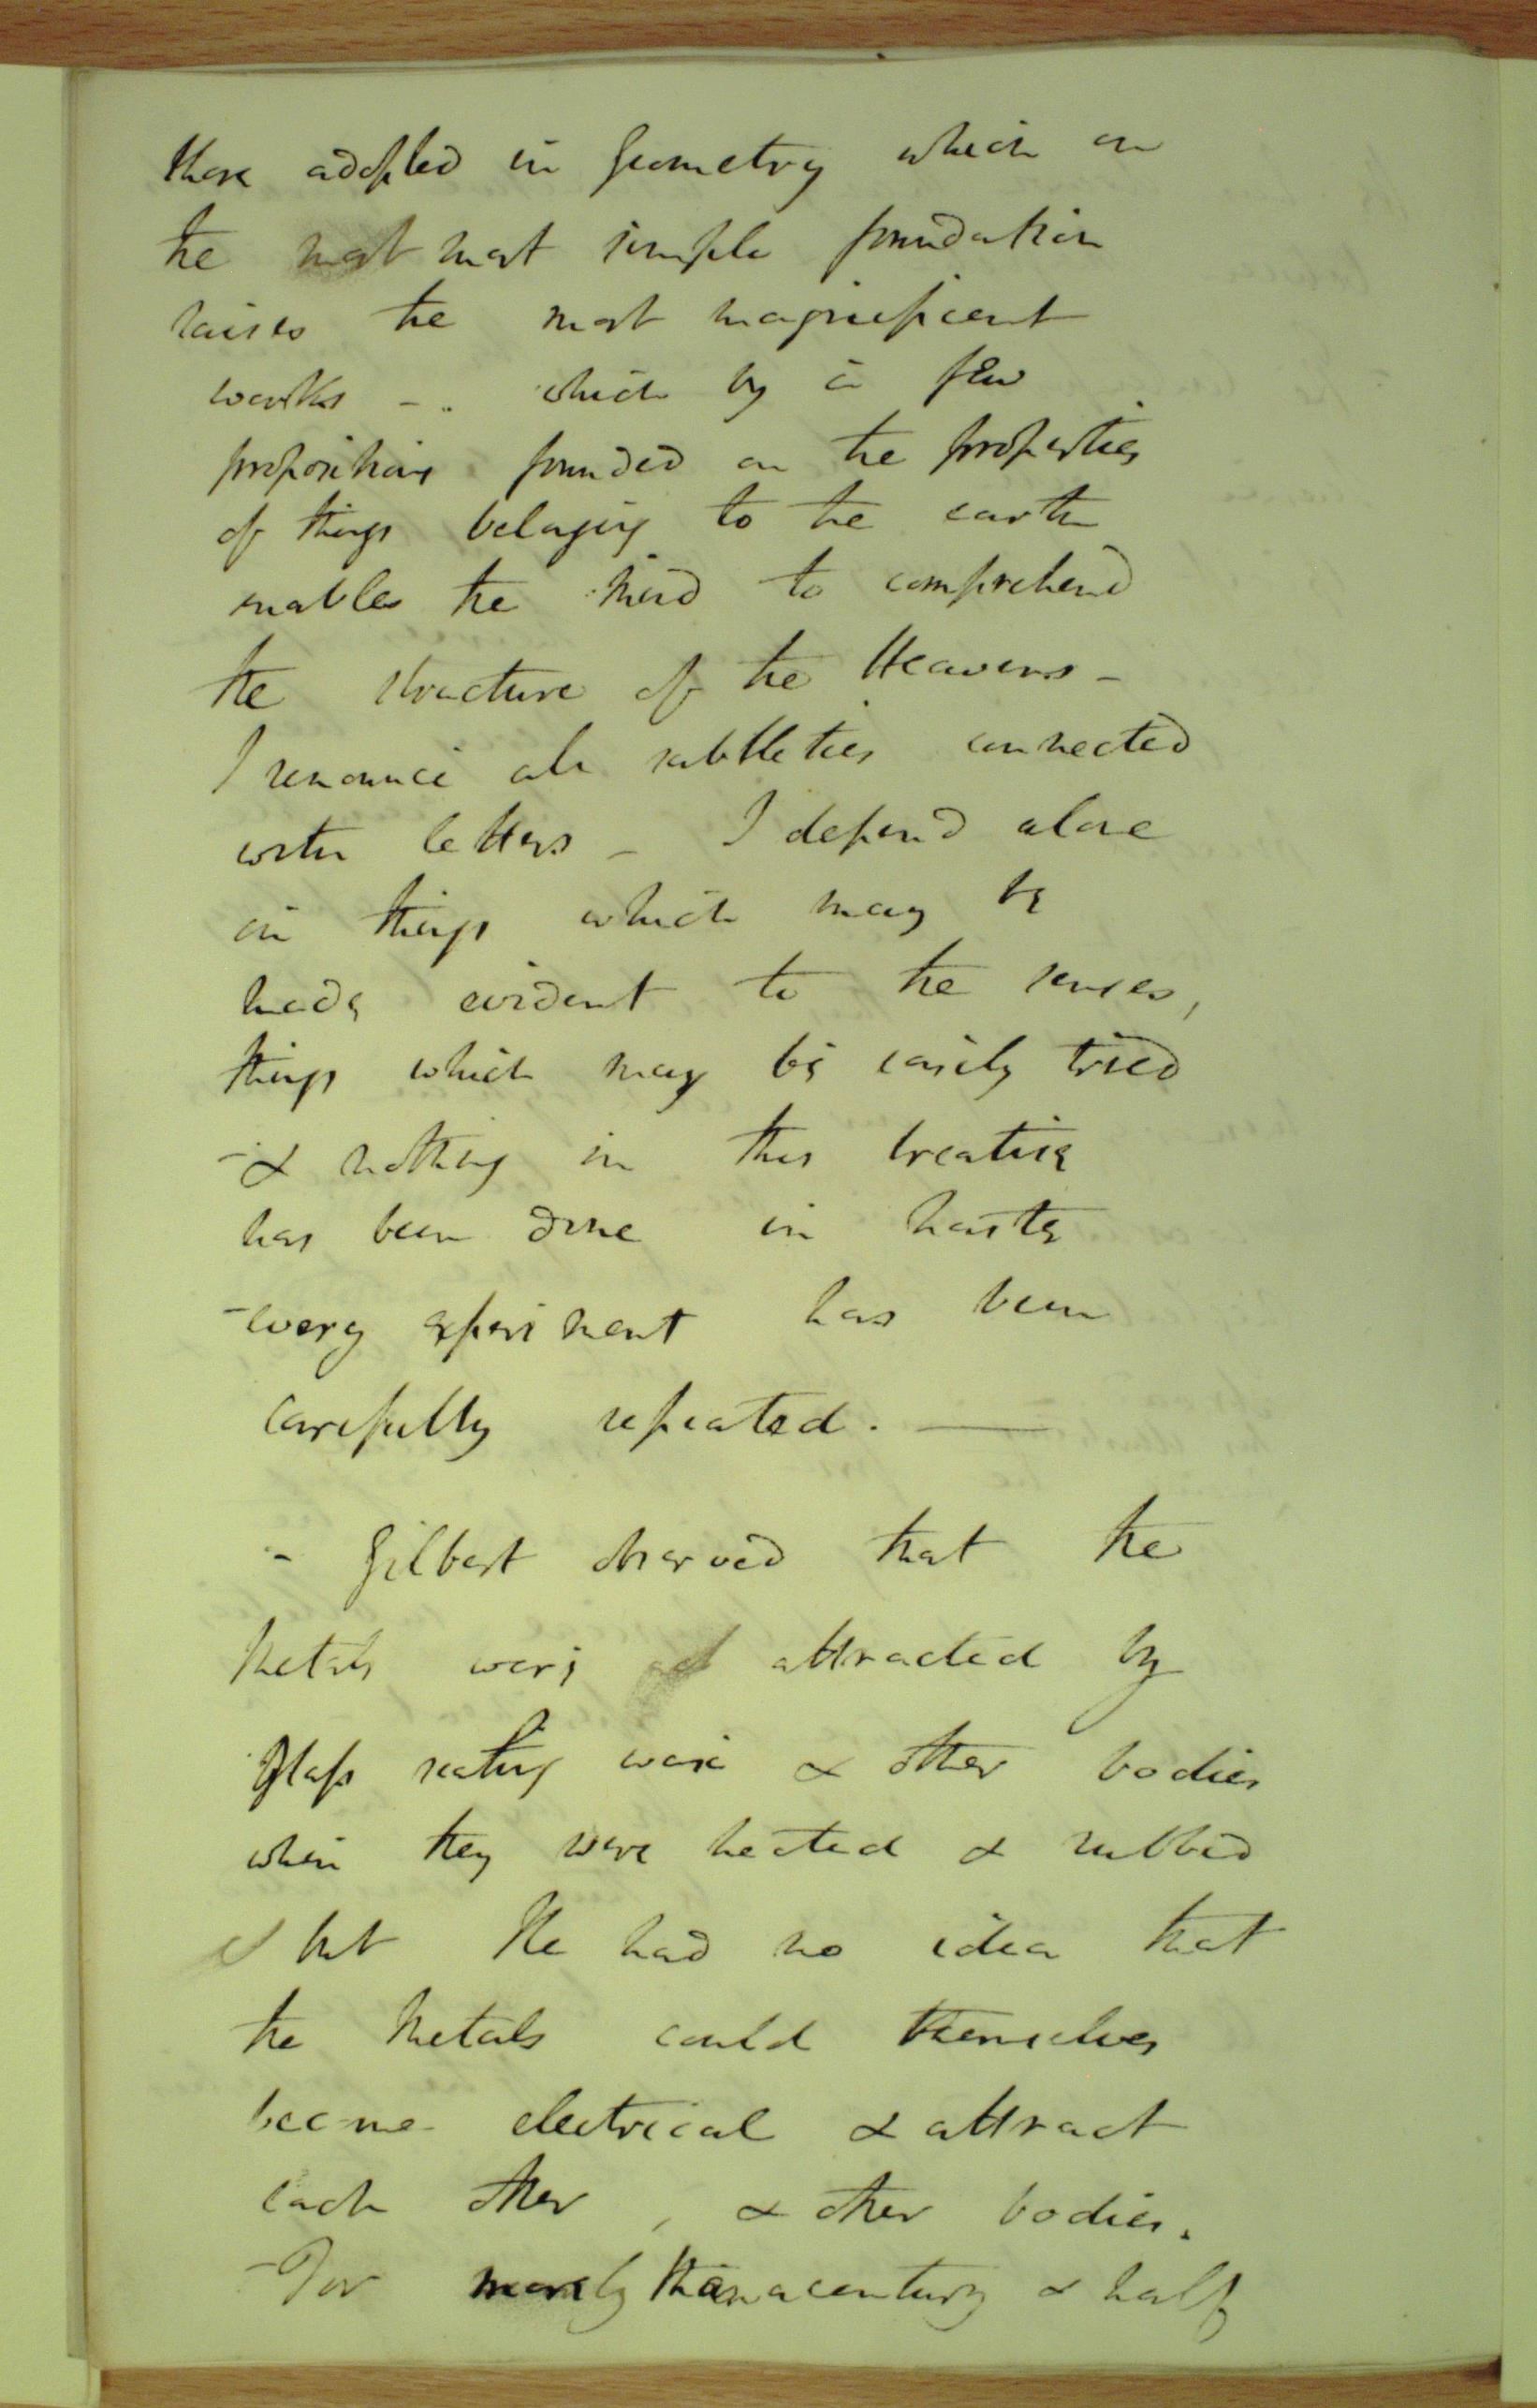 those adopted in Geometry which on
the most most simple foundation
raises the most magnificent
works - . which by a few
propositions founded on the properties
of things belonging to the earth
enables the mind to comprehend
the structure of the Heavens -
I renounce all subtleties connected
with letters - I depend alone
on things which may be
made evident to the senses,
things which may be easily tried
- & nothing in this treatise
has been done in haste
- every experiment has been
carefully repeated. —
- Gilbert observed that the
Metals were attracted by
Glass sealing wax & other bodies
when they were heated & rubbed
but He had no idea that
the Metals could themselves
become electrical & attract
each other, & other bodies.
- For more than a century & half